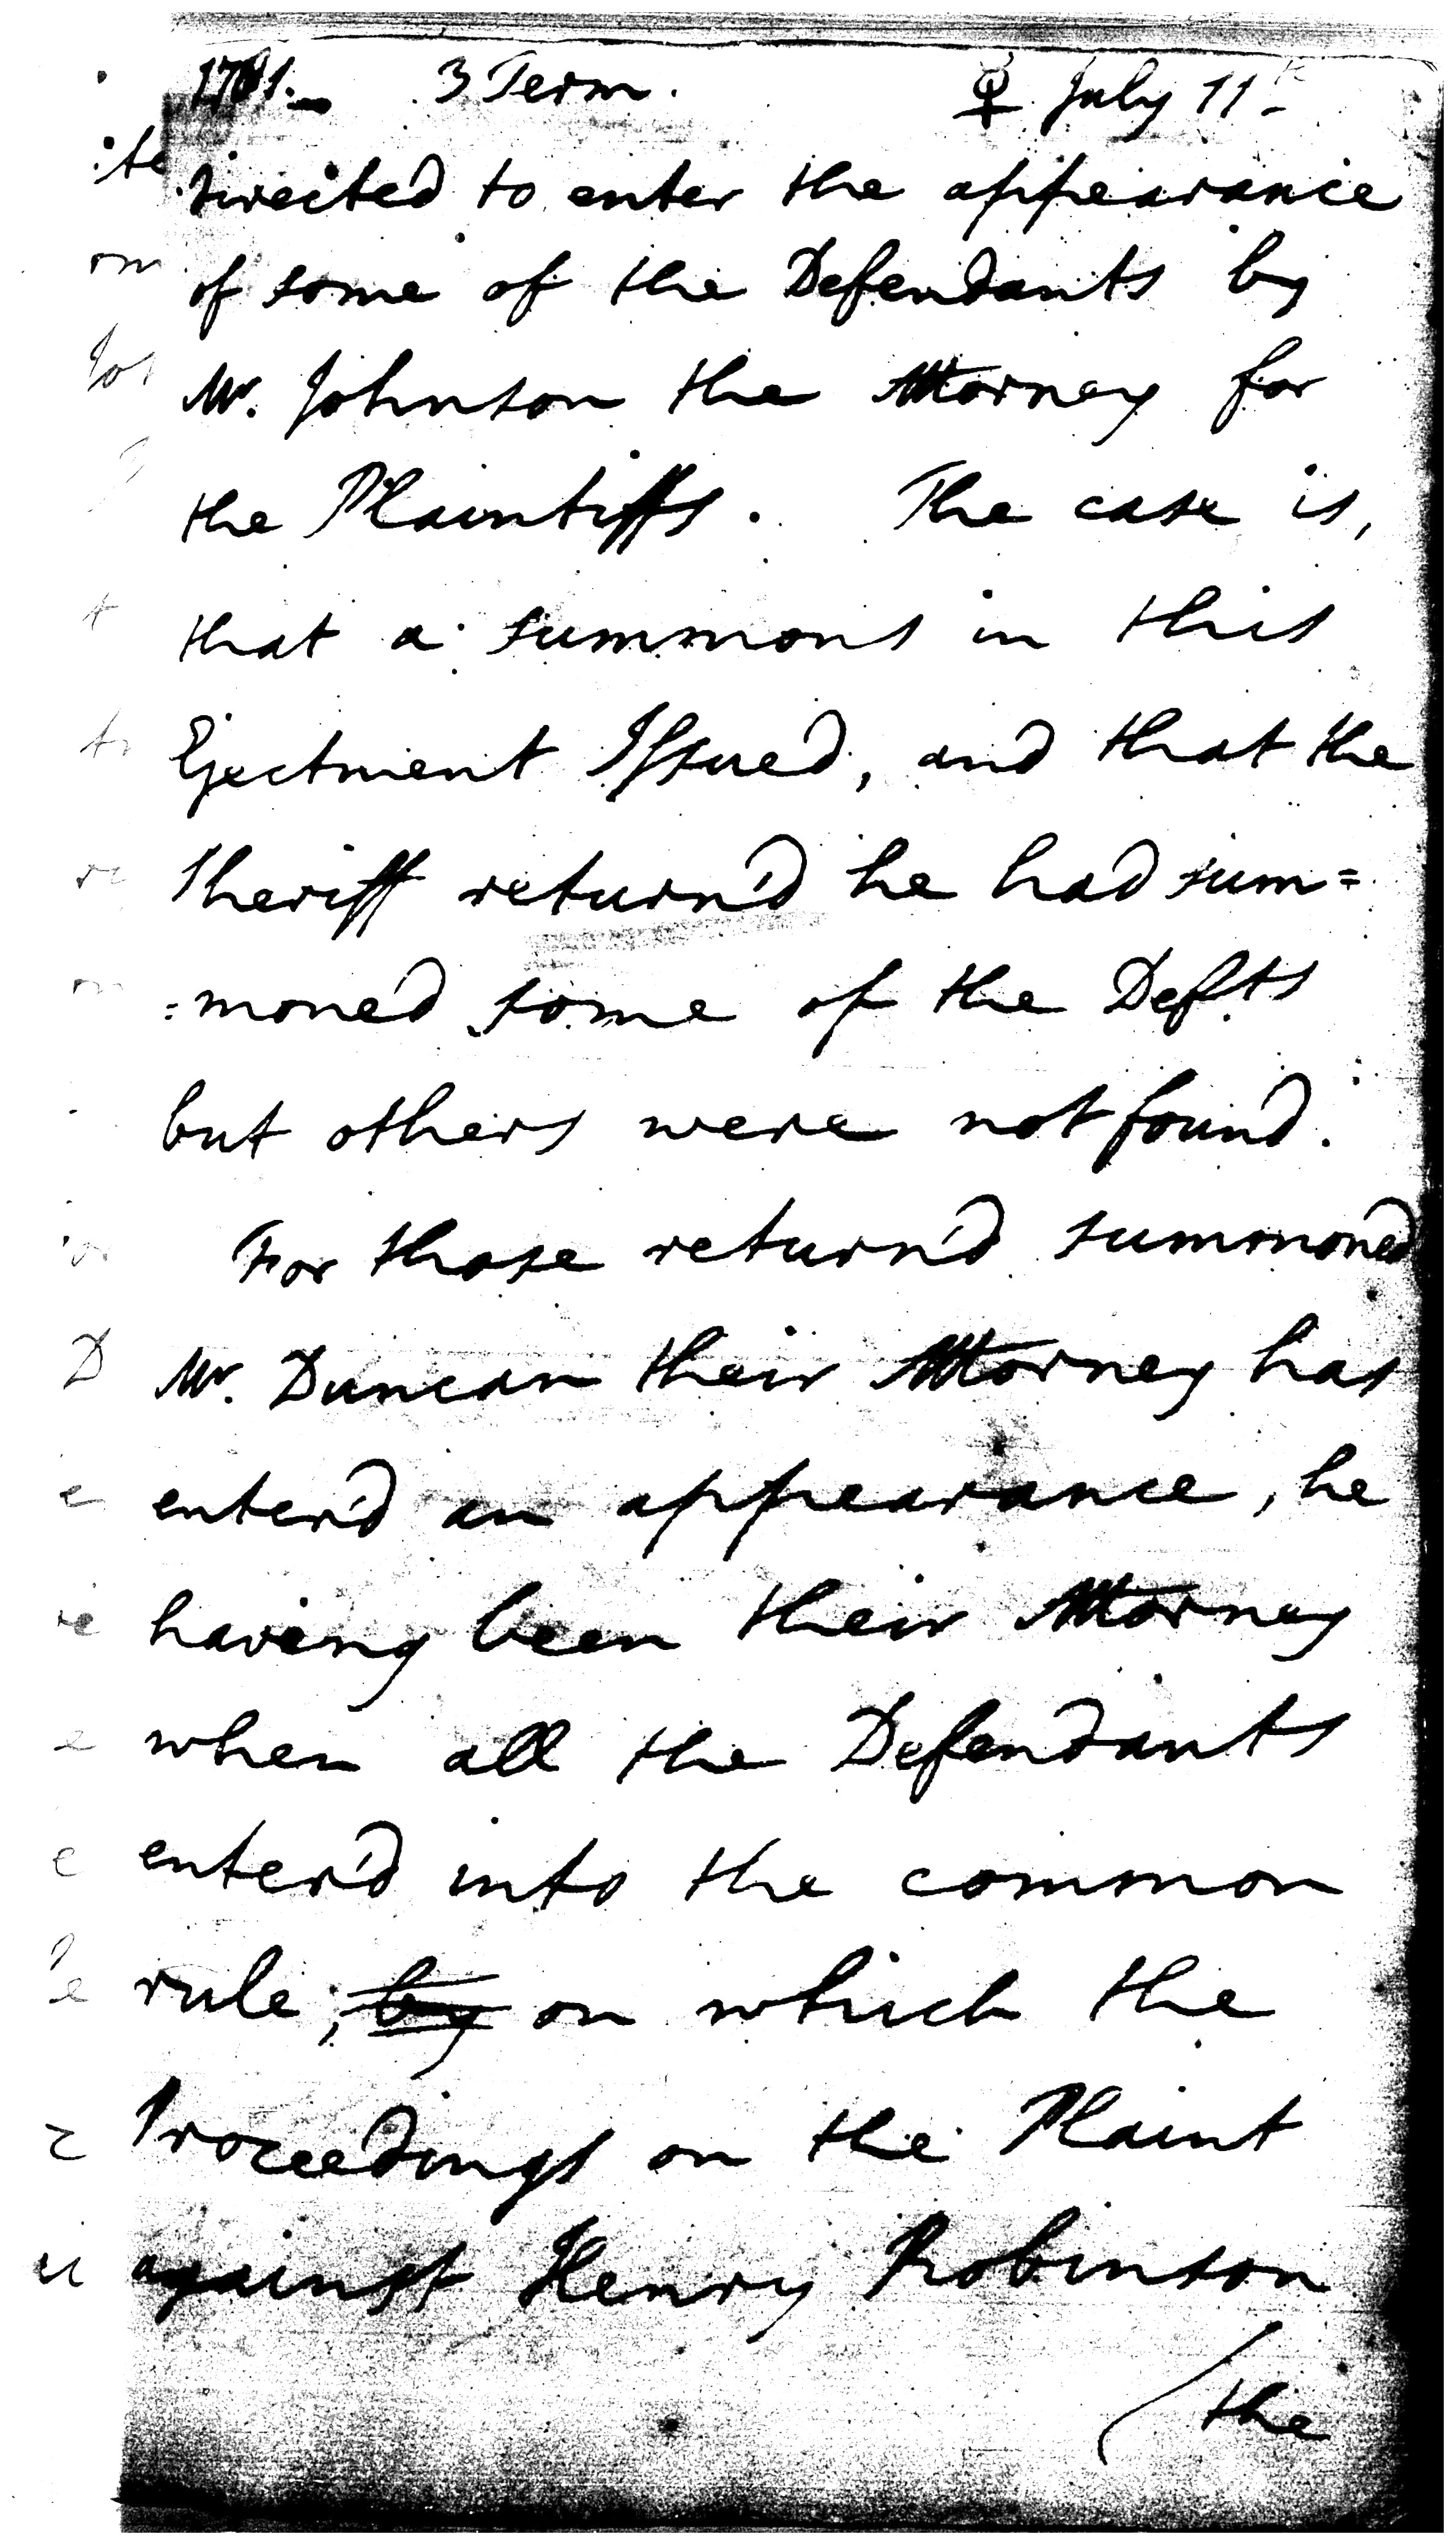 1781. 3 Term. ♀ July 11th
directed to enter the appearance
of some of the Defendants by
Mr. Johnson the Attorney for
the Plaintiffs. The case is,
that a summons in this
Ejectment Issued, and that the
Sheriff return'd he had sum=
=moned some of the Defts
but others were not found.
For those return'd summoned
Mr. Duncan their Attorney has
enter'd an appearance, he
having been their Attorney
when all the Defendants
enter'd into the common
rule; by on which the
Proceedings on the Plaint
against Henry Robinson
the